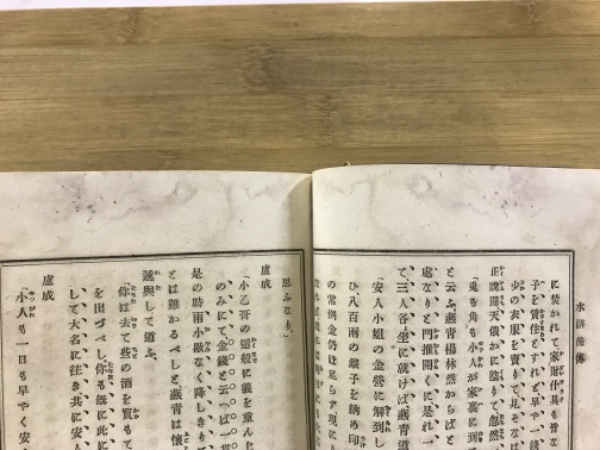 水滸後傳
に焚かれて、家財什具も皆な
子を質住とすれど早や一錢
少の衣服を賣りて見そなは
正說間天俄かに陰りて忽然
「兎も角も小人が家裏に到り
と云ふ、燕青楊林然からばと
處なりと門推開くに、是れ一
て、三人各〻坐に就けば、燕青道
「安人小姐の金營に解到し
ひ八百兩の銀子を納め印
の常例金仍ほ足らず現に
思ふなり、」
盧成
「小乙哥の這般に義を重んじ
のみにて金錢と云へば一貫
是の時雨小歇なく降しきり
とは難かるべしと、燕青は懷
遞與して道ふ、
「你は去て些の酒を買もて
を出づべし、你も旣に此に
して大名に往き共に安人
盧成
「小人も一日も早やく安人